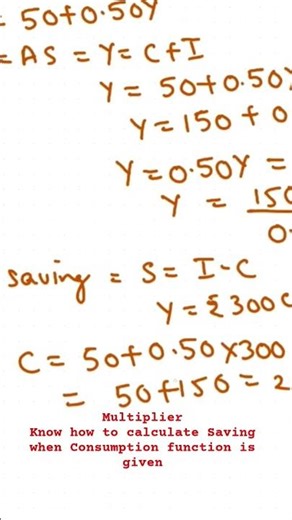 = 50+0.50Y
= AS = Y = C+I
Y = 50+0.50Y
Y = 150 + 0
Y = 0.50Y =
Y = 150
0.
Saving = S = I-C
Y = ₹300
C = 50+0.50×300
= 50+150 = 2
Multiplier
Know how to calculate Saving
when Consumption function is
given